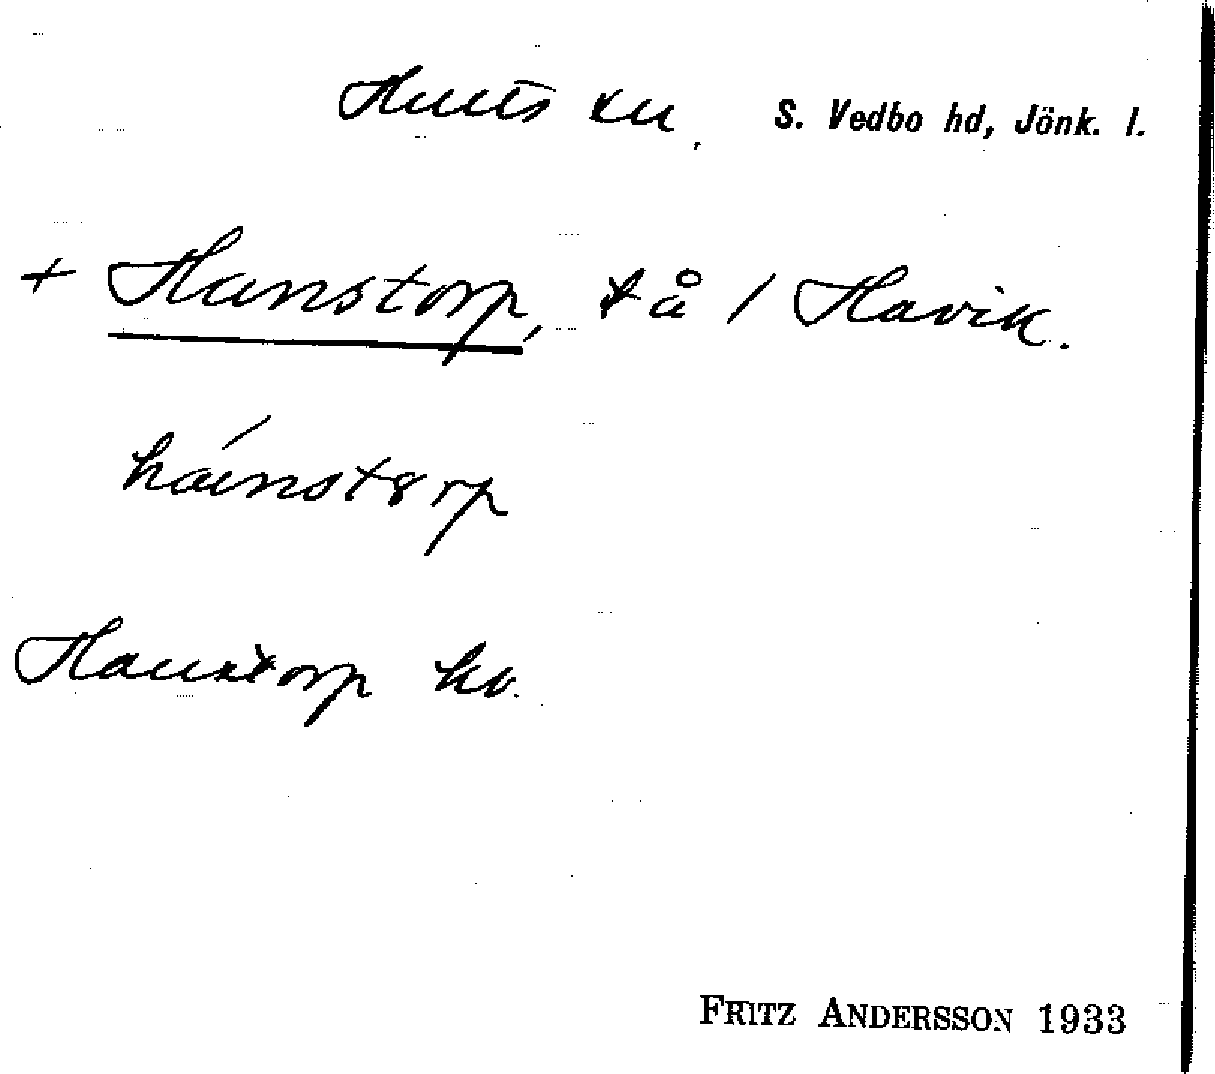 Hults sn, S. Vedbo hd, Jönk. l.
+ Hanstorp, t å / Havik.
hánstorp
Hanstorp hv.
FRITZ ANDERSSON 1933